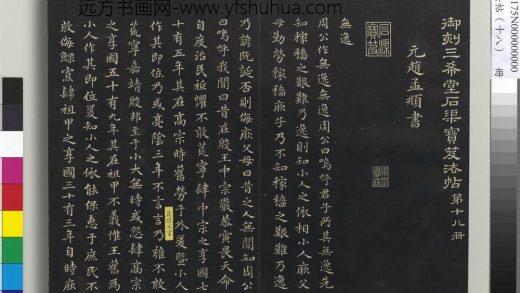 远方书画网-www.yfshuhua.com
175N000000000
帖(十八)
御刻三希堂石渠寶笈法帖 第十八冊
元趙孟頫書
石渠寶笈
無逸
周公作無逸無逸周公曰嗚呼君子所其無逸先
知稼穡之艱難乃逸則知小人之依相小人厥父
母勤勞稼穡厥子乃不知稼穡之艱難乃逸
乃諺既誕否則侮厥父母曰昔之人無聞知周公
曰嗚呼我聞曰昔在殷王中宗嚴恭寅畏天命
自度治民祗懼不敢荒寧肆中宗之享國七
十有五年其在高宗時舊勞于外爰暨小人
作其即位乃或亮陰三年不言言乃雍不敢
荒寧嘉靖殷邦至于小大無時或怨肆高宗
之享國五十有九年其在祖甲不義惟王舊爲
小人作其即位爰知小人之依能保惠于庶民不
敢侮鰥寡肆祖甲之享國三十有三年自時厥